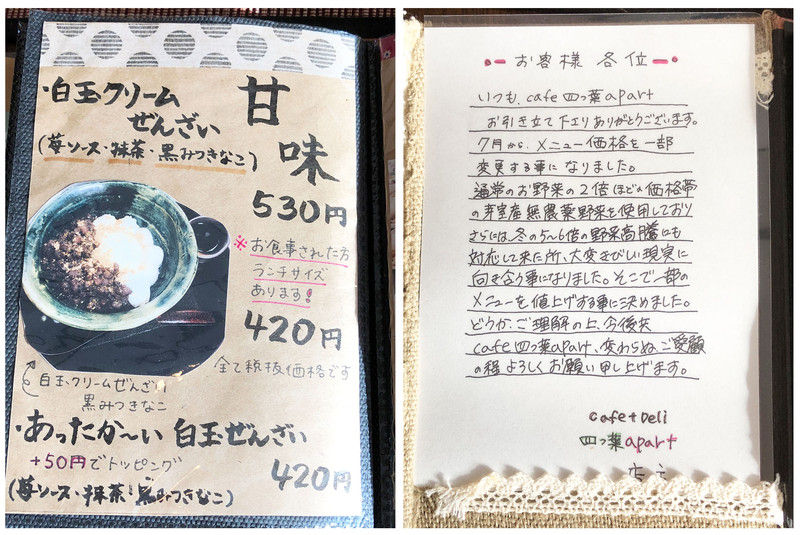 ・白玉クリーム
ぜんざい
(苺ソース・抹茶・黒みつきなこ)
甘味
530円
※お食事された方
ランチサイズ
あります!
420円
全て税抜価格です
白玉クリームぜんざい
黒みつきなこ
・あったか〜い 白玉ぜんざい
+50円でトッピング
420円
(苺ソース・抹茶・黒みつきなこ)
お客様 各位
いつも、cafe 四つ葉apart
お引き立て下エリありがとうございます。
7月から、メニュー価格を一部
変更する事になりました。
通常のお野菜の2倍ほどの価格帯
の芽室産無農薬野菜を使用しており
さらには、冬の5〜6倍の野菜高騰にも
対応して来た所、大変きびしい現実に
向き合う事になりました。そこで一部の
メニューを値上げする事に決めました。
どうか、ご理解の上、今後共
cafe 四つ葉apart、変わらぬご愛顧
の程よろしくお願い申し上げます。
cafe+Deli
四つ葉apart
店主